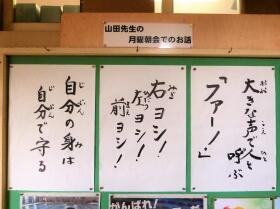 山田先生の
月曜朝会でのお話
大きな声で人を呼ぶ
「ファー！」
右ヨシ！
左ヨシ！
前ヨシ！
自分の身は
自分で守る
がんばれ！